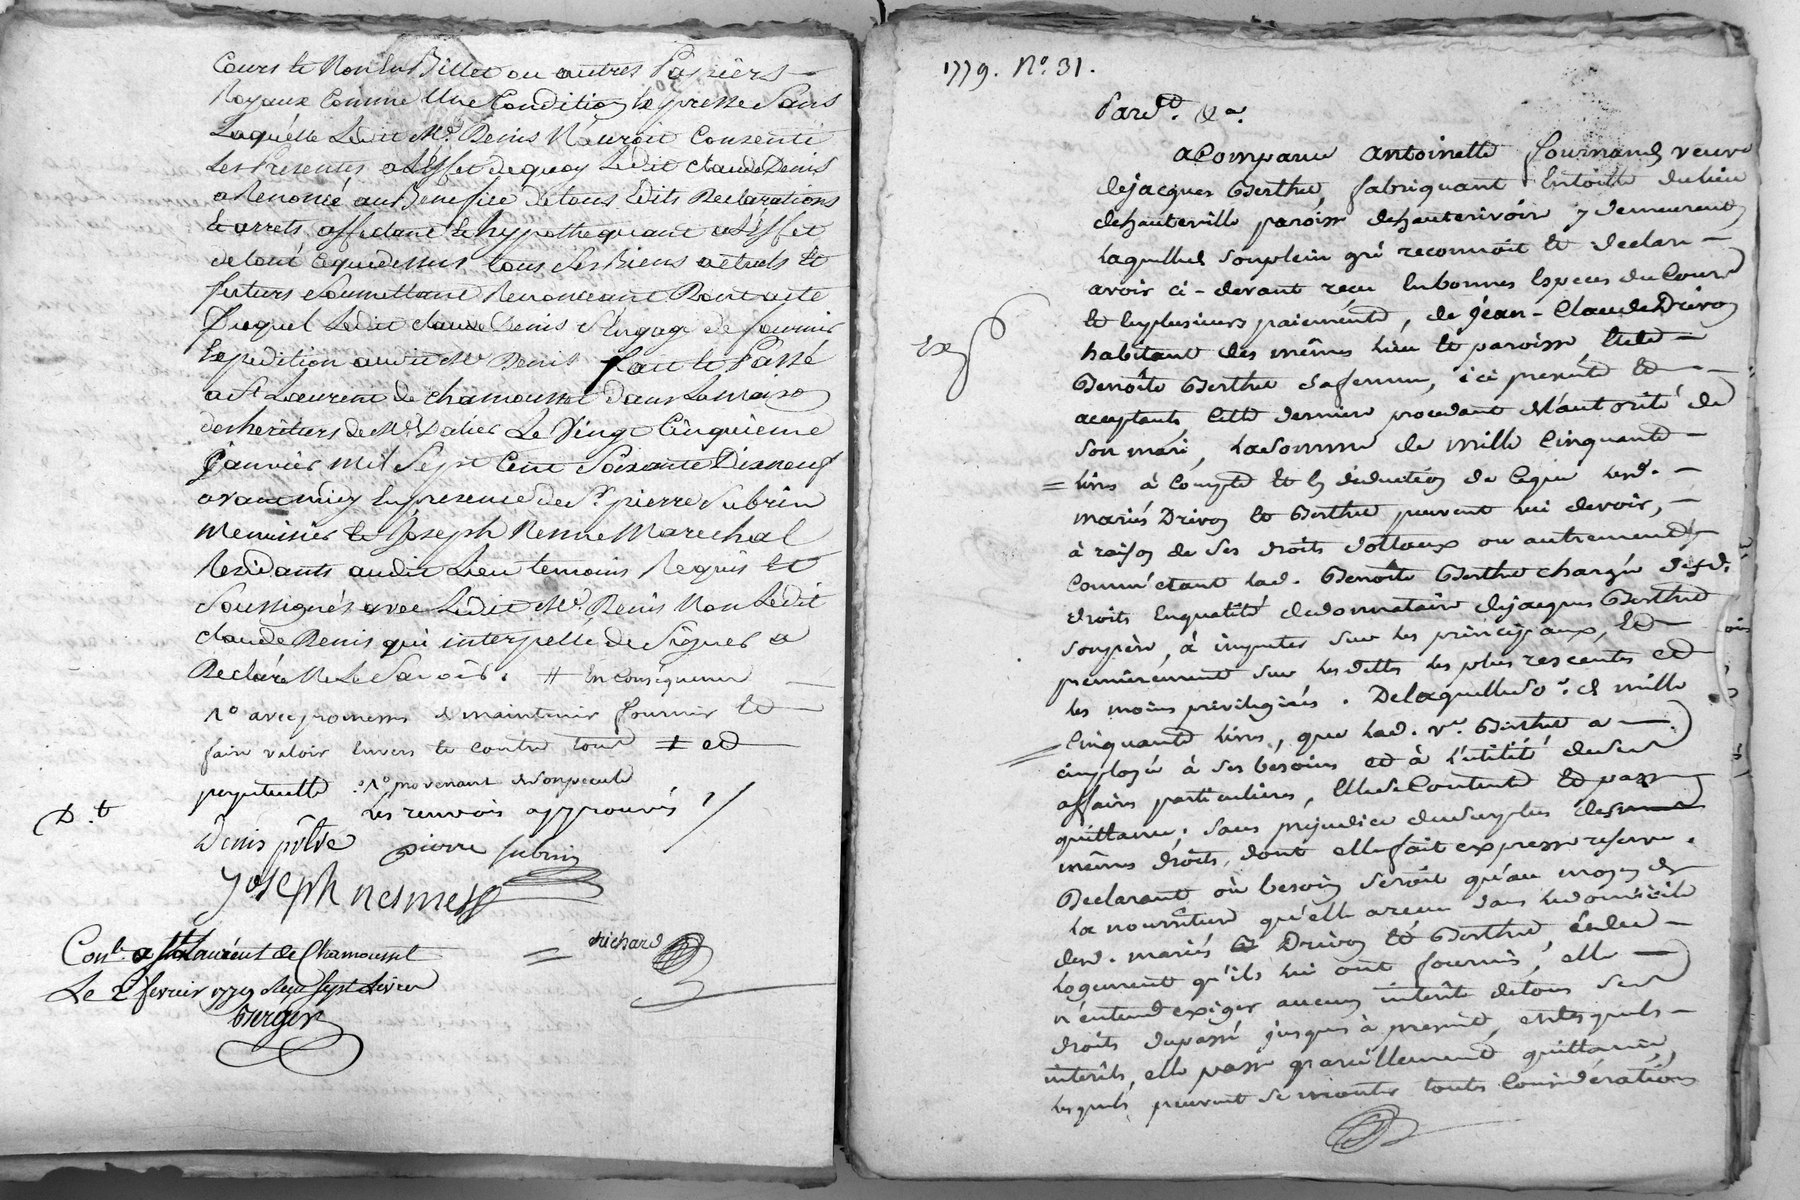 Cours et Non En Billet ou autres Papiers
Royaux Comme Une Condition Expresse Sans
Laquelle Ledit Mre Denis N'auroit Consenti
Les Presentes a L'effet de quoy Ledit Claude Denis
a Renoncé au Benefice de tous Edits Declarations
Et arrets affectant et hypothequant a L'effet
de tout Cequedessus tous Ses Biens actuels Et
futurs Soumettant Renonceant Dont acte
Duquel Ledit Claude Denis S'Engage de fournir
Expedition audit Mre Denis fait et Passé
a St Laurent de chamousset dans La maison
des heritiers de Me Dalier Le Vingt Cinquieme
Janvier Mil Sept Cent Soixante Dix neuf
avant midy En presence de Sr pierre Subrin
Menuisier et Joseph Nesme Marechal
Residants audit Lieu temoins Requis Et
Soussignés avec Ledit Mre Denis Non Ledit
Claude Denis qui interpellé de Signer a
Declaré Ne Le Savoir. # En consequence
1º avec promesse de maintenir fournir et
faire valoir Envers et contre tous ‡ et
perpetuelle 1º provenant de son pecule
Les renvois approuvés
D.t
Denis ptre pierre subrin
Joseph nesme
richard
Con.le a St Laurent de Chamousset
Le 2 fevrier 1779 Reçu Sept Livres
Berger
1779. Nº. 31.
Pard.t &a.
a Comparu antoinette fournand veuve
de jacques Berthet, fabriquant En toille du lieu
de hauteville paroisse de hauterivoir y demeurant,
laquelle de son plein gré reconnoit et declare
avoir ci-devant reçu En bonnes Especes du Cours
et En plusieurs paiements, de jean-Claude Drivon
habitant des mêmes lieu et paroisse Et de
Benoîte Berthet sa femme, ici presents et
acceptants, Cette derniere procedant de l'autorité de
Exp
son mari, la somme de mille Cinquante
= livres à Compte et En deduction de Ce que lesd.
mariés Drivon et Berthet peuvent lui devoir,
à raison de ses droits dottaux ou autrement,
Comme étant lad. Benoîte Berthet chargée desd.
droits En qualité de donnataire de jacques Berthet
son pere, à imputer sur les principaux, Et
premierement sur les dettes les plus rescentes et
les moins privilegiées. De laquelle So.e de mille
= Cinquante livres, que lad. Ve. Berthet a
employée à ses besoins et à l'utilité de ses
affaires particulieres, Elle se Contente Et passe
quittance; sans prejudice du surplus desmmes
mêmes droits, dont elle fait expresse reserve.
Declarant où besoin seroit qu'au moyen de
la nourriture qu'elle a reçu dans le domicile
desd. mariés Drivon et Berthet et du
logement qu'ils lui ont fourni, elle
n'entend exiger aucun interêt de tous ses
droits du passé jusques à present, et desquels
interêts, elle passe pareillement quittance,
lesquels peuvent se monter toutes Considerations